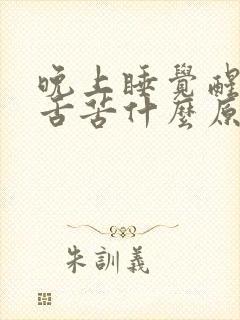 晚上睡覺醒
舌苦什麼原
朱訓義